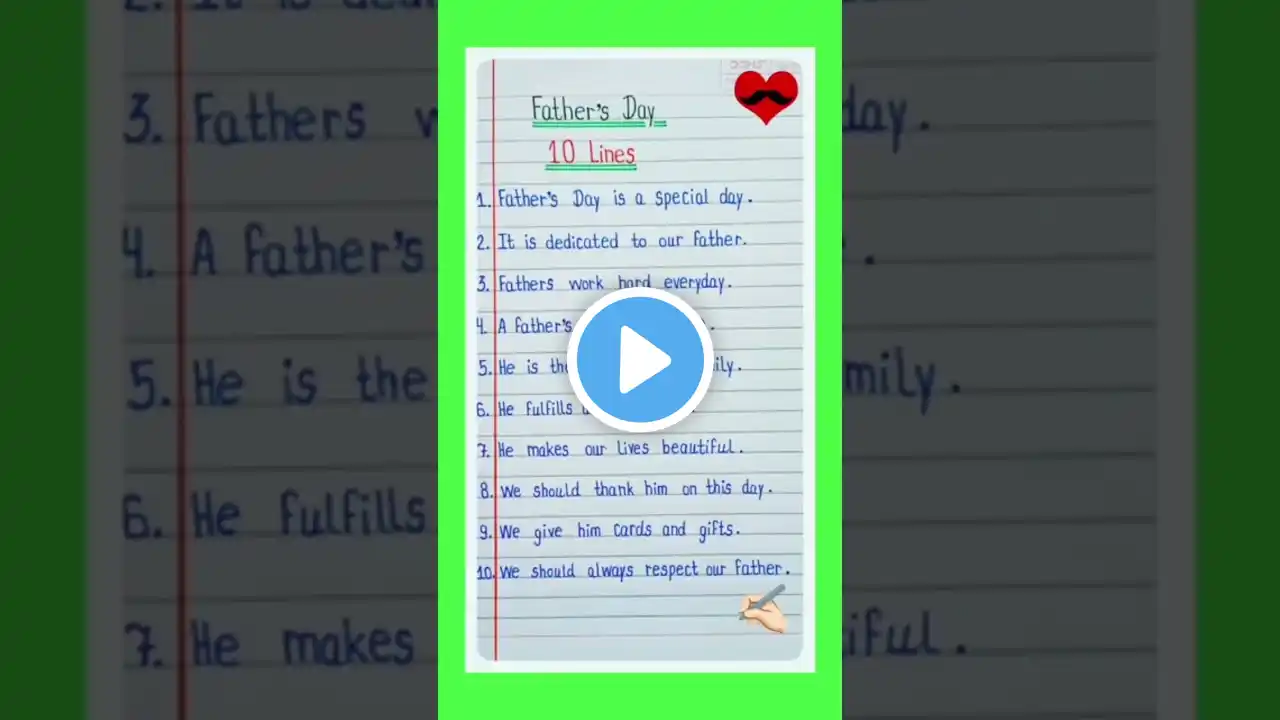 Father's Day
10 Lines
1. Father's Day is a special day.
2. It is dedicated to our father.
3. Fathers work hard everyday.
4. A father's
5. He is the
6. He fulfills
7. He makes our lives beautiful.
8. We should thank him on this day.
9. We give him cards and gifts.
10. We should always respect our father.